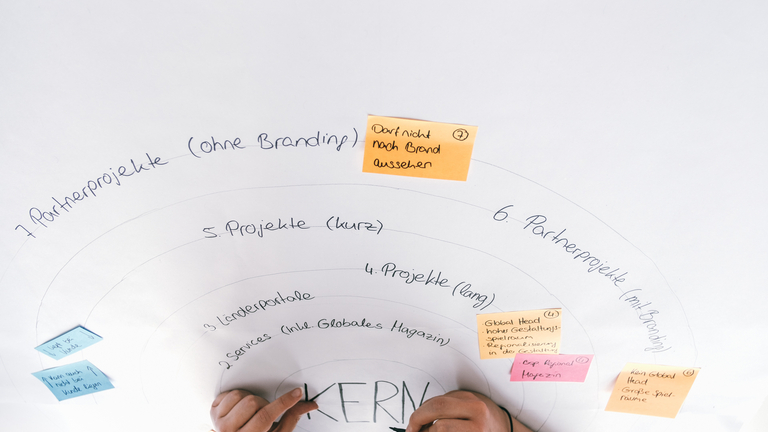 7. Partnerprojekte (ohne Branding)
Darf nicht
nach Brand
aussehen
7
6. Partnerprojekte (mit Branding)
5. Projekte (kurz)
4. Projekte (lang)
3. Länderportale
2. Services (Inkl. Globales Magazin)
Global Head
hoher Gestaltungs-
spielraum
Regionalisierung
in der Gestaltung
4
Magazin
Kein Global
Head
Große Spiel-
räume
KERN